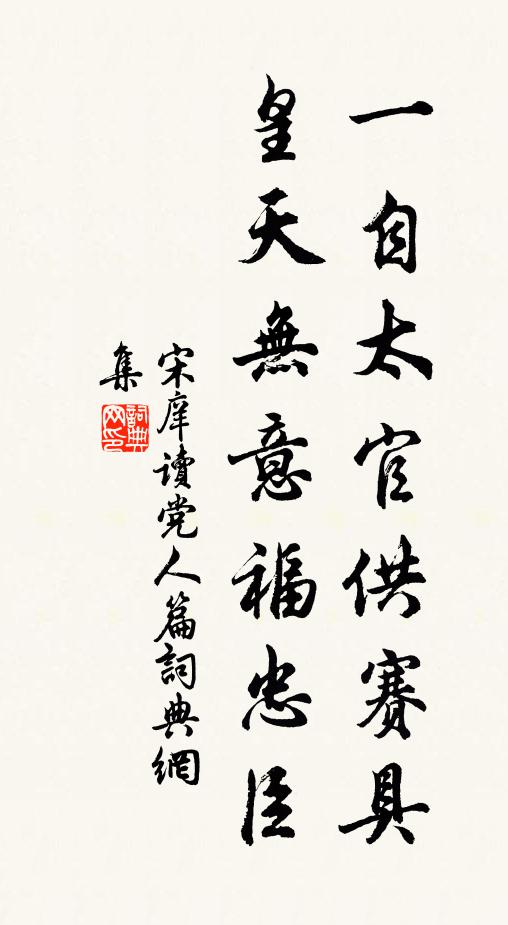 一自太官供賽具
皇天無意福忠臣
宋庠讀党人篇詞典網
集
詞典
网印